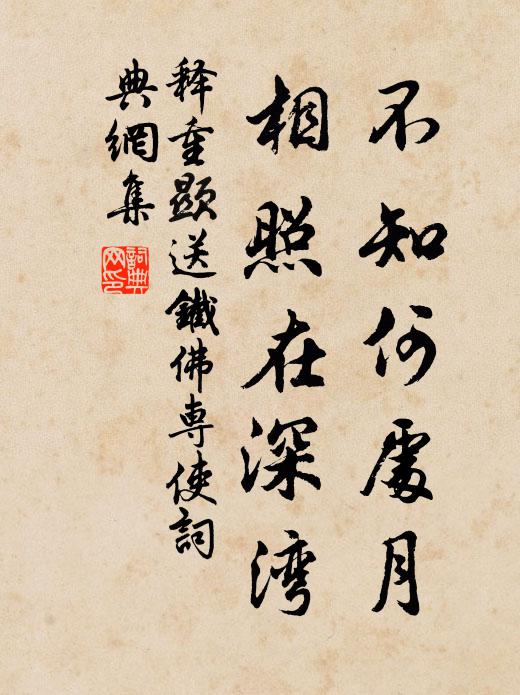 不知何處月
相照在深湾
释重顯送鐵佛專使詞
典網集
詞典
网印